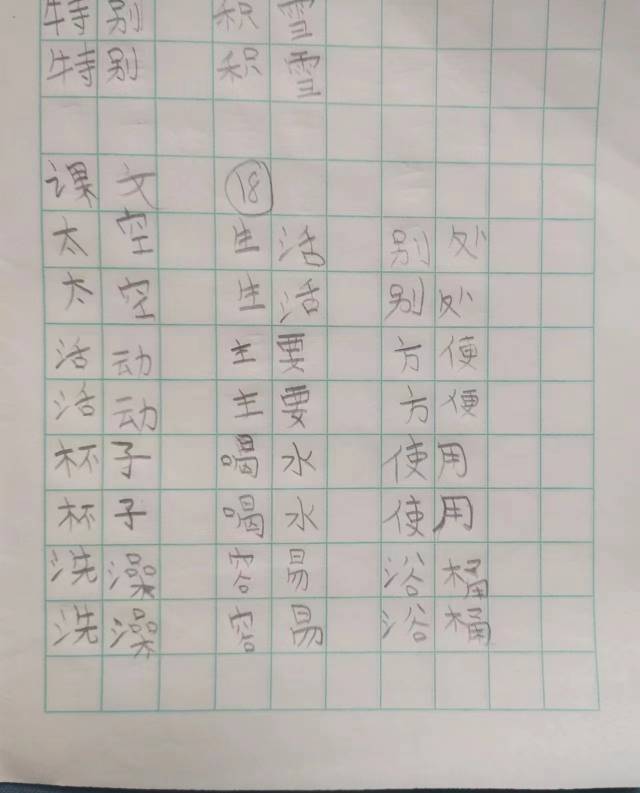 特别 积雪
特别 积雪
课文 18
太空 生活 别处
太空 生活 别处
活动 主要 方便
活动 主要 方便
杯子 喝水 使用
杯子 喝水 使用
洗澡 容易 浴桶
洗澡 容易 浴桶